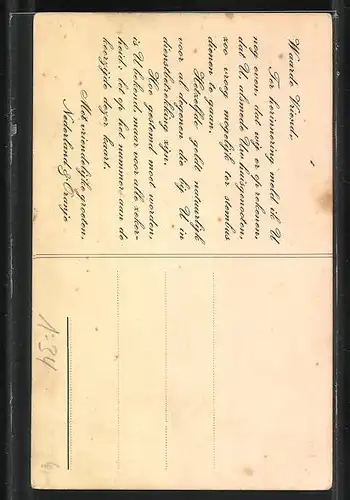 Waarde Vriend.
Ter herinnering meld ik U
nog even, dat wij er op rekenen,
dat U, alsmede Uw huisgenooten,
zoo vroeg mogelijk ter stembus
dienen te gaan.
Hetzelfde geldt natuurlijk
voor al degenen die bij U in
dienstbetrekking zijn.
Hoe gestemd moet worden,
is U bekend, maar voor alle zeker-
heid, let op het nummer aan de
keerzijde dezer kaart.
Met vriendelijke groeten,
Nederland & Oranje
1:34